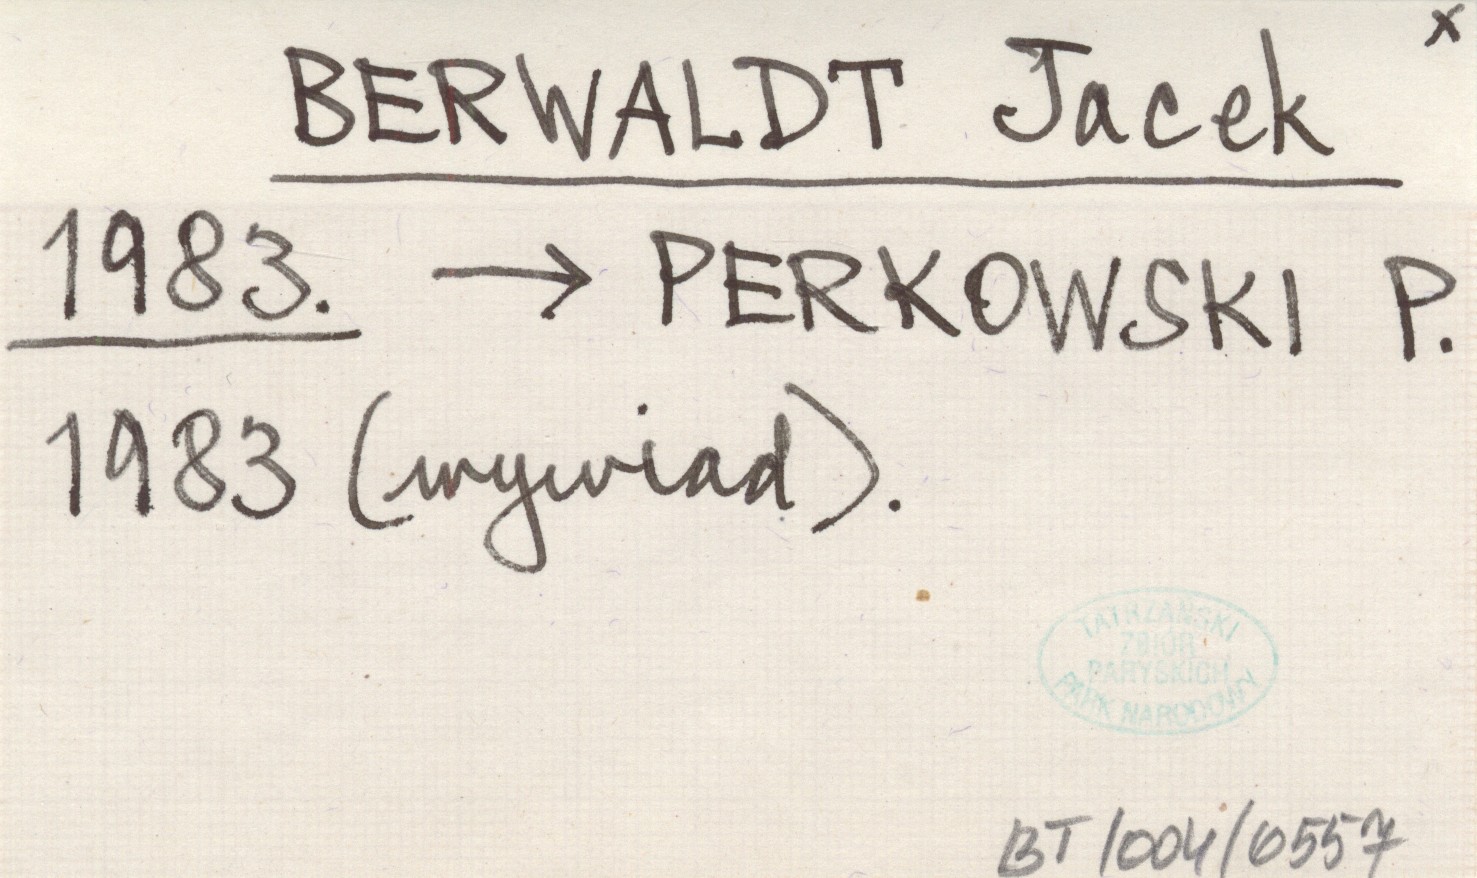 x
BERWALDT Jacek
1983. → PERKOWSKI P.
1983 (wywiad).
TATRZAŃSKI
ZBIÓR
PARYSKICH
PARK NARODOWY
BT/004/0557